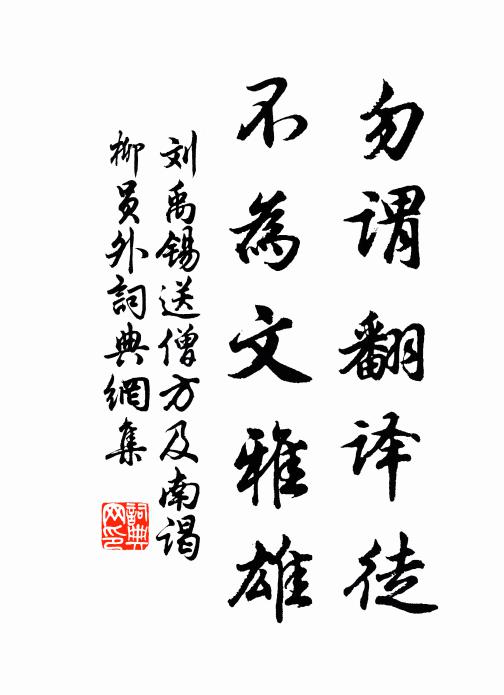 勿谓翻译徒
不為文雅雄
刘禹锡送僧方及南谒
柳员外詞典網集
詞典
网印